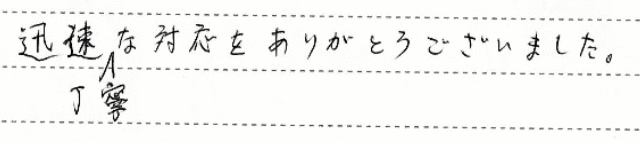 迅速な対応をありがとろございました。
丁寧